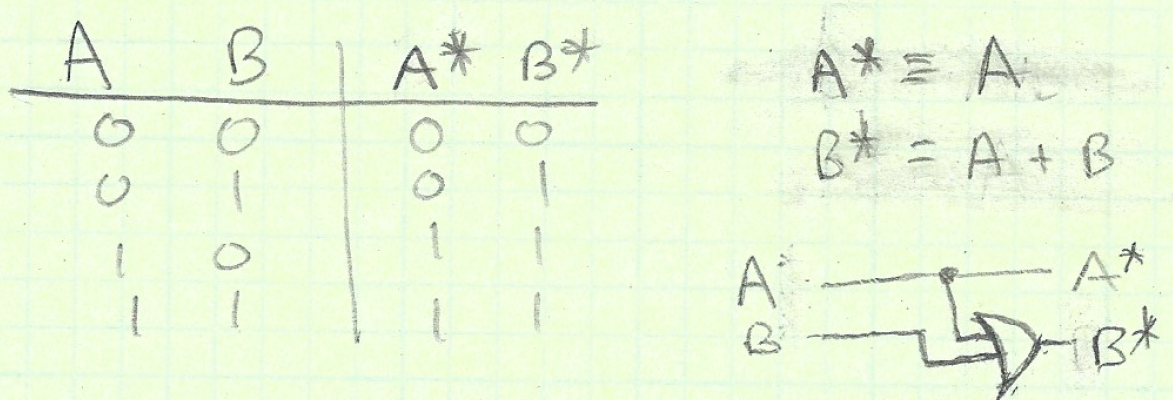 A B A* B*
0 0 0 0
0 1 0 1
1 0 1 1
1 1 1 1
A* ≡ A
B* = A + B
A A*
B B*